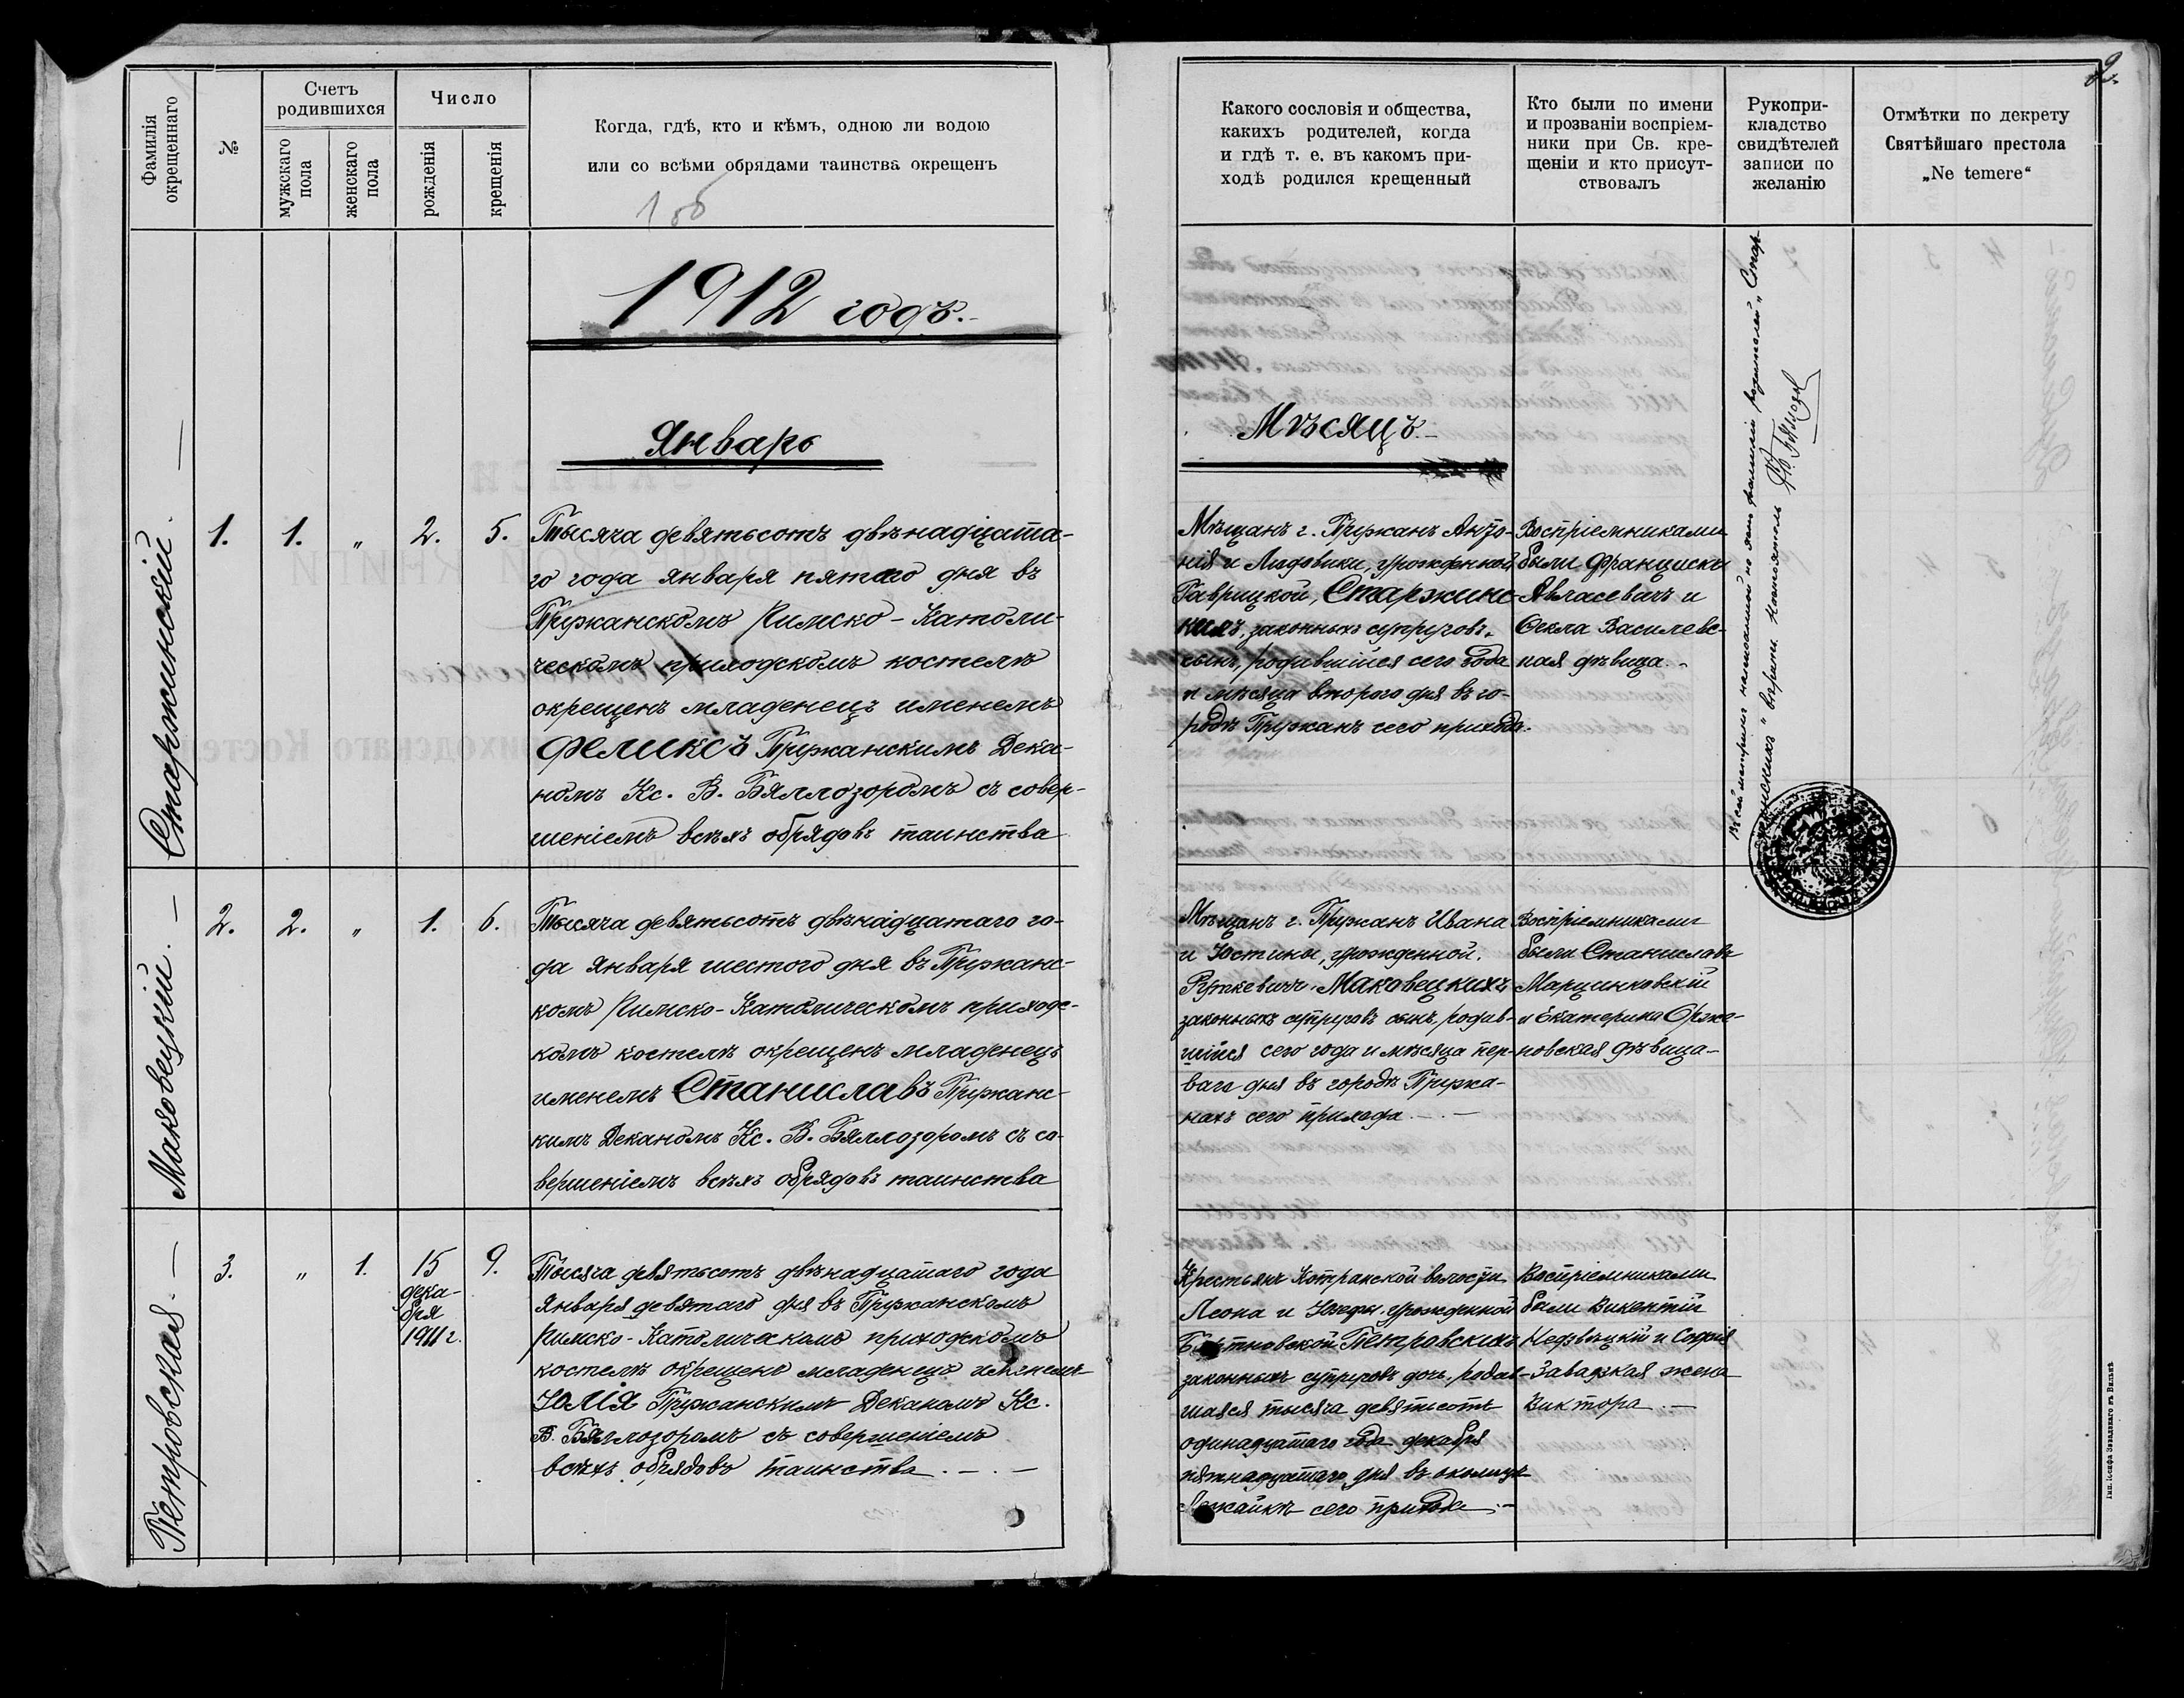 2.
Фамилія
окрещеннаго
№
Счетъ
родившихся
мужскаго
пола
женскаго
пола
Число
рожденія
крещенія
Когда, гдѣ, кто и кѣмъ, одною ли водою
или со всѣми обрядами таинства окрещенъ
Какого сословія и общества,
какихъ родителей, когда
и гдѣ т. е. въ какомъ при-
ходѣ родился крещенный
Кто были по имени
и прозваніи воспріем-
ники при Св. кре-
щеніи и кто присут-
ствовалъ
Рукопри-
кладство
свидѣтелей
записи по
желанію
Отмѣтки по декрету
Святѣйшаго престола
„Ne temere“
1912 годъ.
Январь
Мѣсяцъ
Старжинскій.
1.
1.
„
2.
5.
Тысяча девятьсотъ двѣнадцата-
го года января пятаго дня въ
Пружанскомъ Римско-Католи-
ческомъ приходскомъ костелѣ
окрещенъ младенецъ именемъ
Феликсъ Пружанскимъ Дека-
номъ Кс. В. Бяллозоромъ съ совер-
шеніемъ всѣхъ обрядовъ таинства
Мѣщанъ г. Пружанъ Анто-
нія и Людовики, урожденной
Гаврицкой, Старжинс-
кихъ, законныхъ супруговъ
сынъ, родившійся сего года
и мѣсяца второго дня въ го-
родѣ Пружанъ сего прихода.
Воспріемниками
были Францискъ
Авласевичъ и
Фекла Василевс-
кая дѣвица.
Въ сей метрикѣ написанной по
фамиліи родителей „Стар-
жинскихъ“ вѣрить. Настоятель
Маковецкій.
2.
2.
„
1.
6.
Тысяча девятьсотъ двѣнадцатаго го-
да января шестого дня въ Пружанс-
комъ Римско-Католическомъ приходс-
комъ костелѣ окрещенъ младенецъ
именемъ Станиславъ Пружанс-
кимъ Деканомъ Кс. В. Бяллозоромъ съ со-
вершеніемъ всѣхъ обрядовъ таинства
Мѣщанъ г. Пружанъ Ивана
и Юстины, урожденной
Маковецкихъ
законныхъ супруговъ сынъ, родив-
шійся сего года и мѣсяца пер-
ваго дня въ городѣ Пружа-
нахъ сего прихода.
Воспріемниками
были Станиславъ
Марцинковскій
и Екатерина Орже-
новская дѣвица
Петровская
3.
„
1.
15
дека-
бря
1911 г.
9.
Тысяча девятьсотъ двѣнадцатаго года
Января девятаго дня въ Пружанскомъ
Римско-Католическомъ приходскомъ
костелѣ окрещенъ младенецъ именемъ
Юлія Пружанскимъ Деканомъ Кс.
В. Бяллозоромъ съ совершеніемъ
всѣхъ обрядовъ таинства.
Крестьянъ Котранской волости
Леона и Юзефы, урожденной
Петровскихъ
законныхъ супруговъ дочь, родив-
шаяся тысяча девятьсотъ
одинадцатаго года декабря
пятнадцатаго дня въ околицѣ
сего прихода
Воспріемниками
были Викентій
Недзвѣцкій и Софія
Завадзкая жена
Виктора.
Тип. Іосифа Завадзкаго въ Вильнѣ